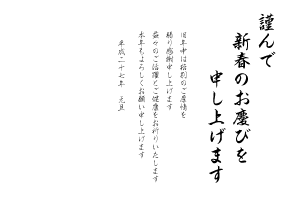 謹んで
新春のお慶びを
申し上げます
旧年中は格別のご厚情を
賜り感謝申し上げます
益々のご活躍とご健康をお祈りいたします
本年もよろしくお願い申し上げます
平成二十七年 元旦